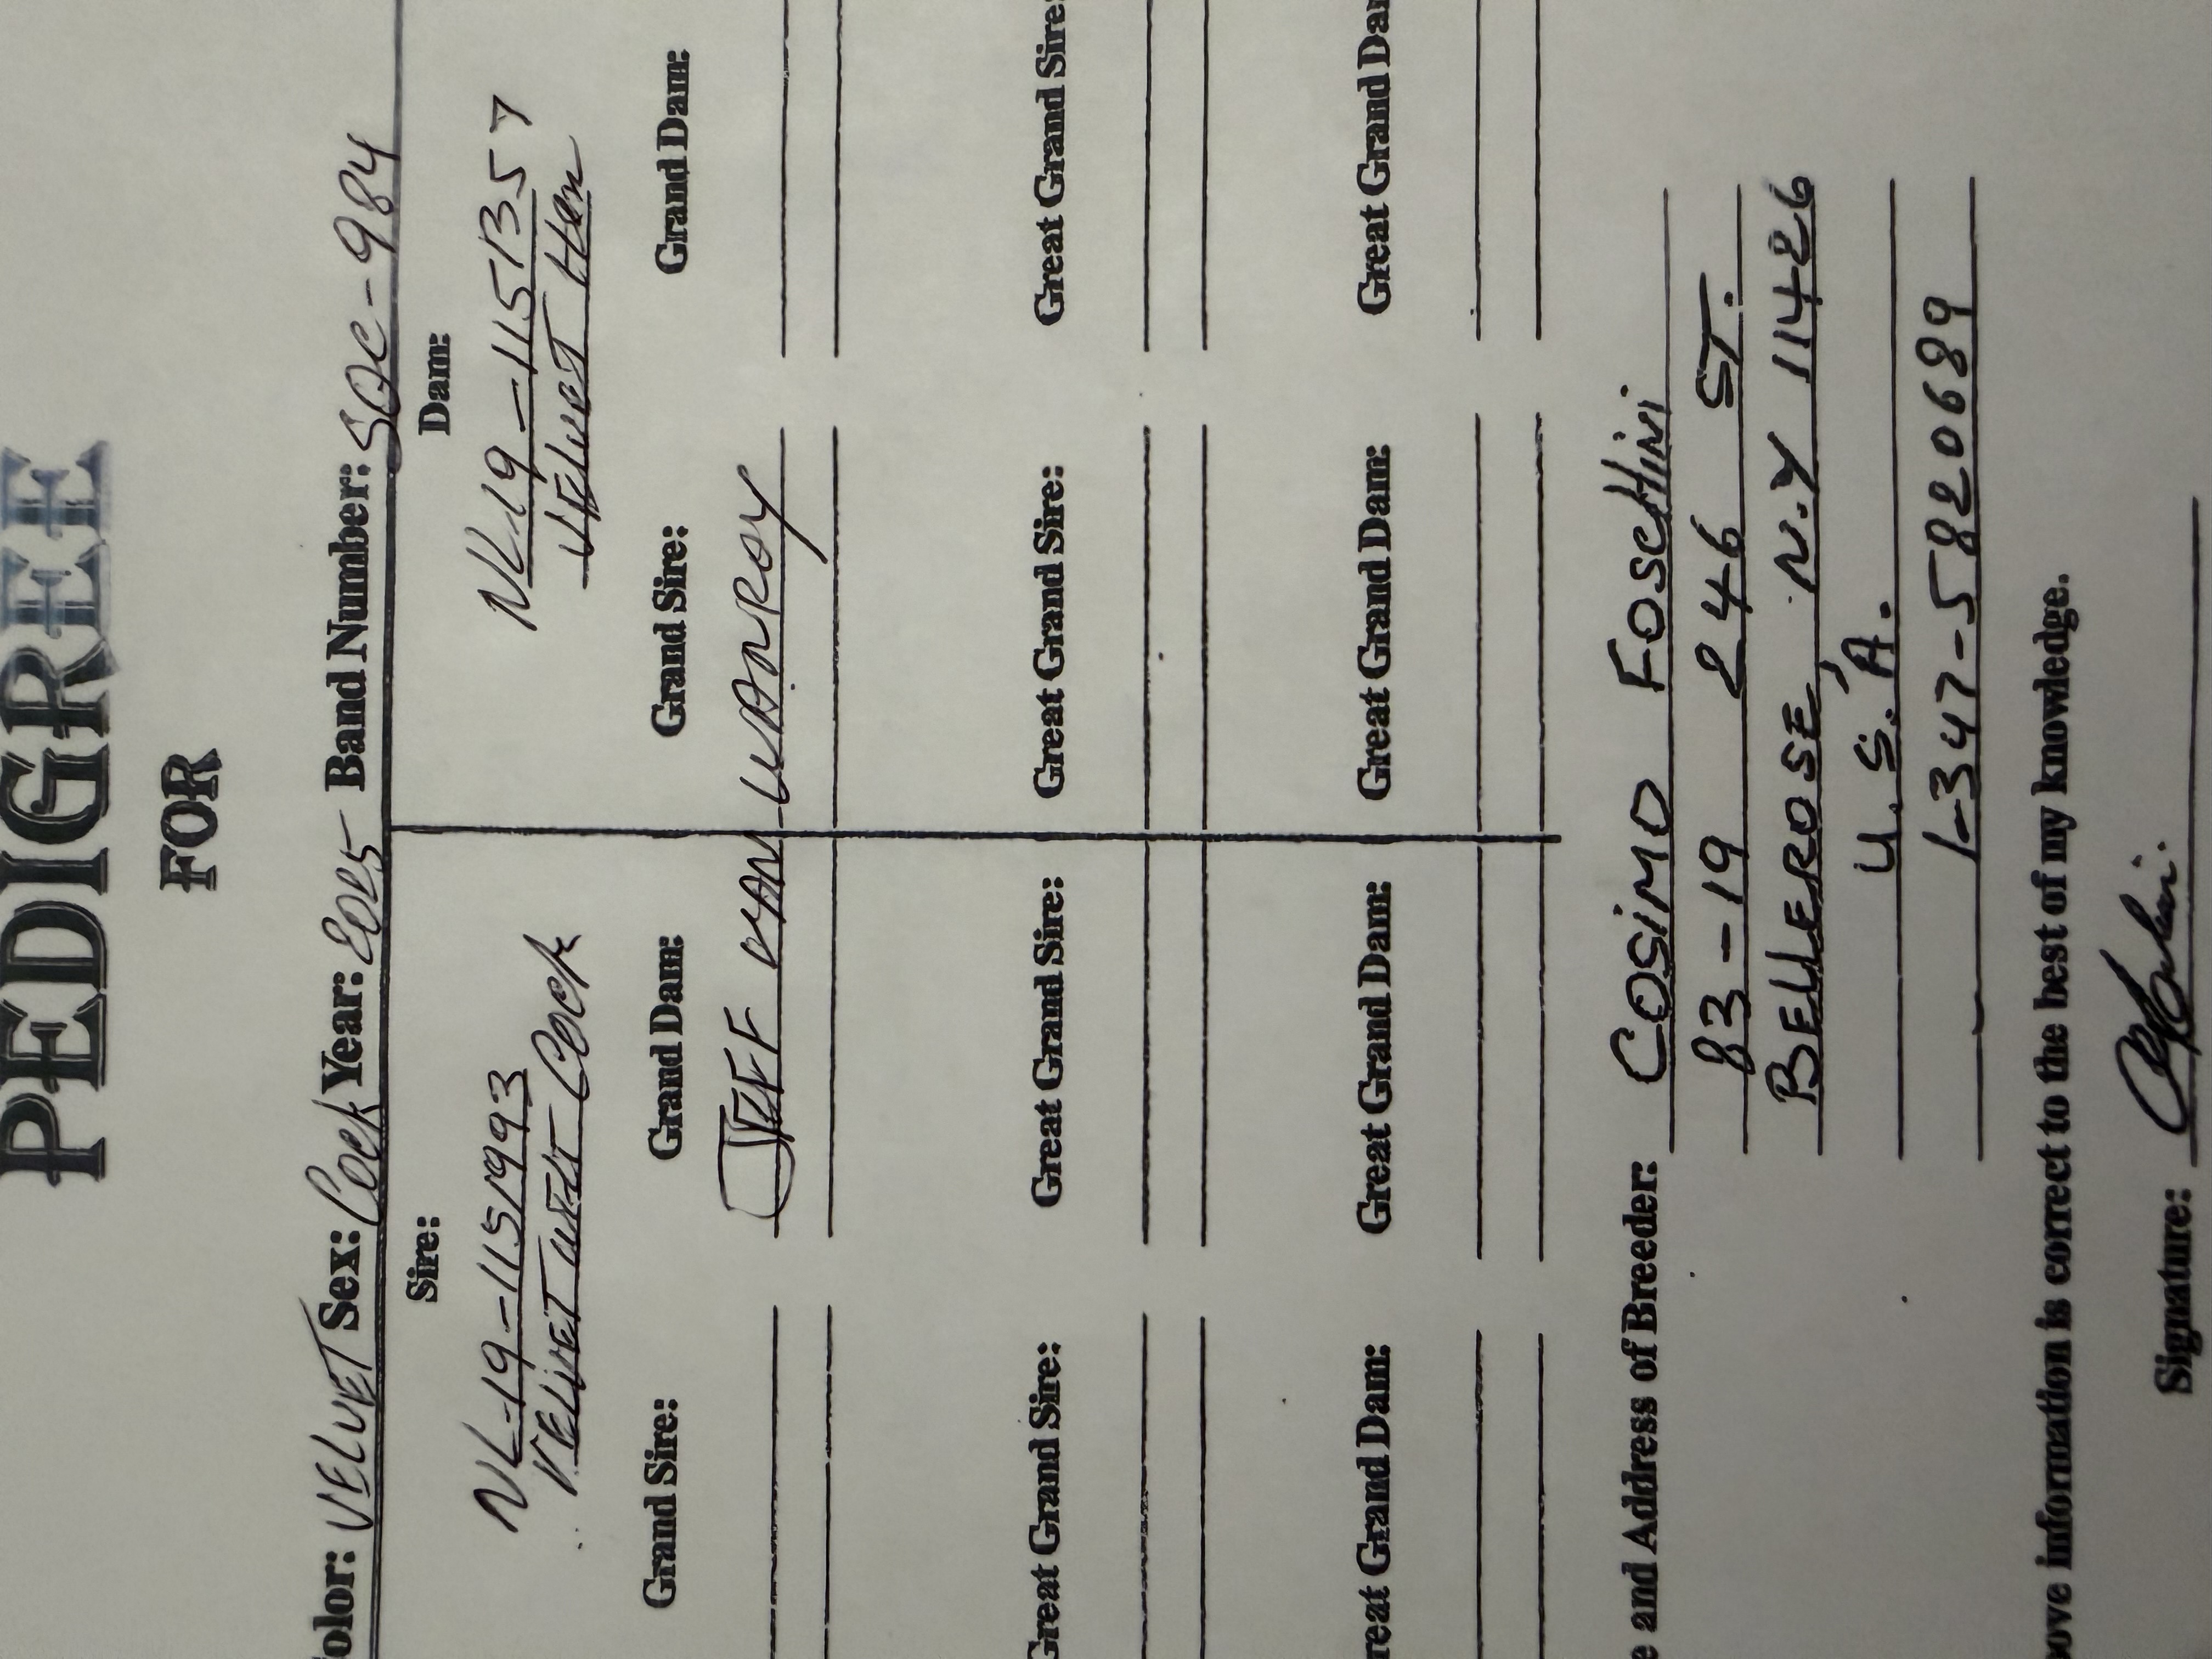 PEDIGREE
FOR
Color: VELVET Sex: Cock Year: 2025 Band Number: SQC-984
Sire: Dam:
NL-19-1151993 NL-19-1151357
VELVET WHT Cock VELVET Hen
Grand Sire: Grand Dam: Grand Sire: Grand Dam:
JEFF VAN WANROY
Great Grand Sire: Great Grand Sire: Great Grand Sire: Great Grand Sire:
Great Grand Dam: Great Grand Dam: Great Grand Dam: Great Grand Dam
and Address of Breeder: COSIMO FOSCHINI
83-19 246 ST.
BELLEROSE, N.Y 11426
U.S.A.
1-347-5820689
above information is correct to the best of my knowledge.
Signature: